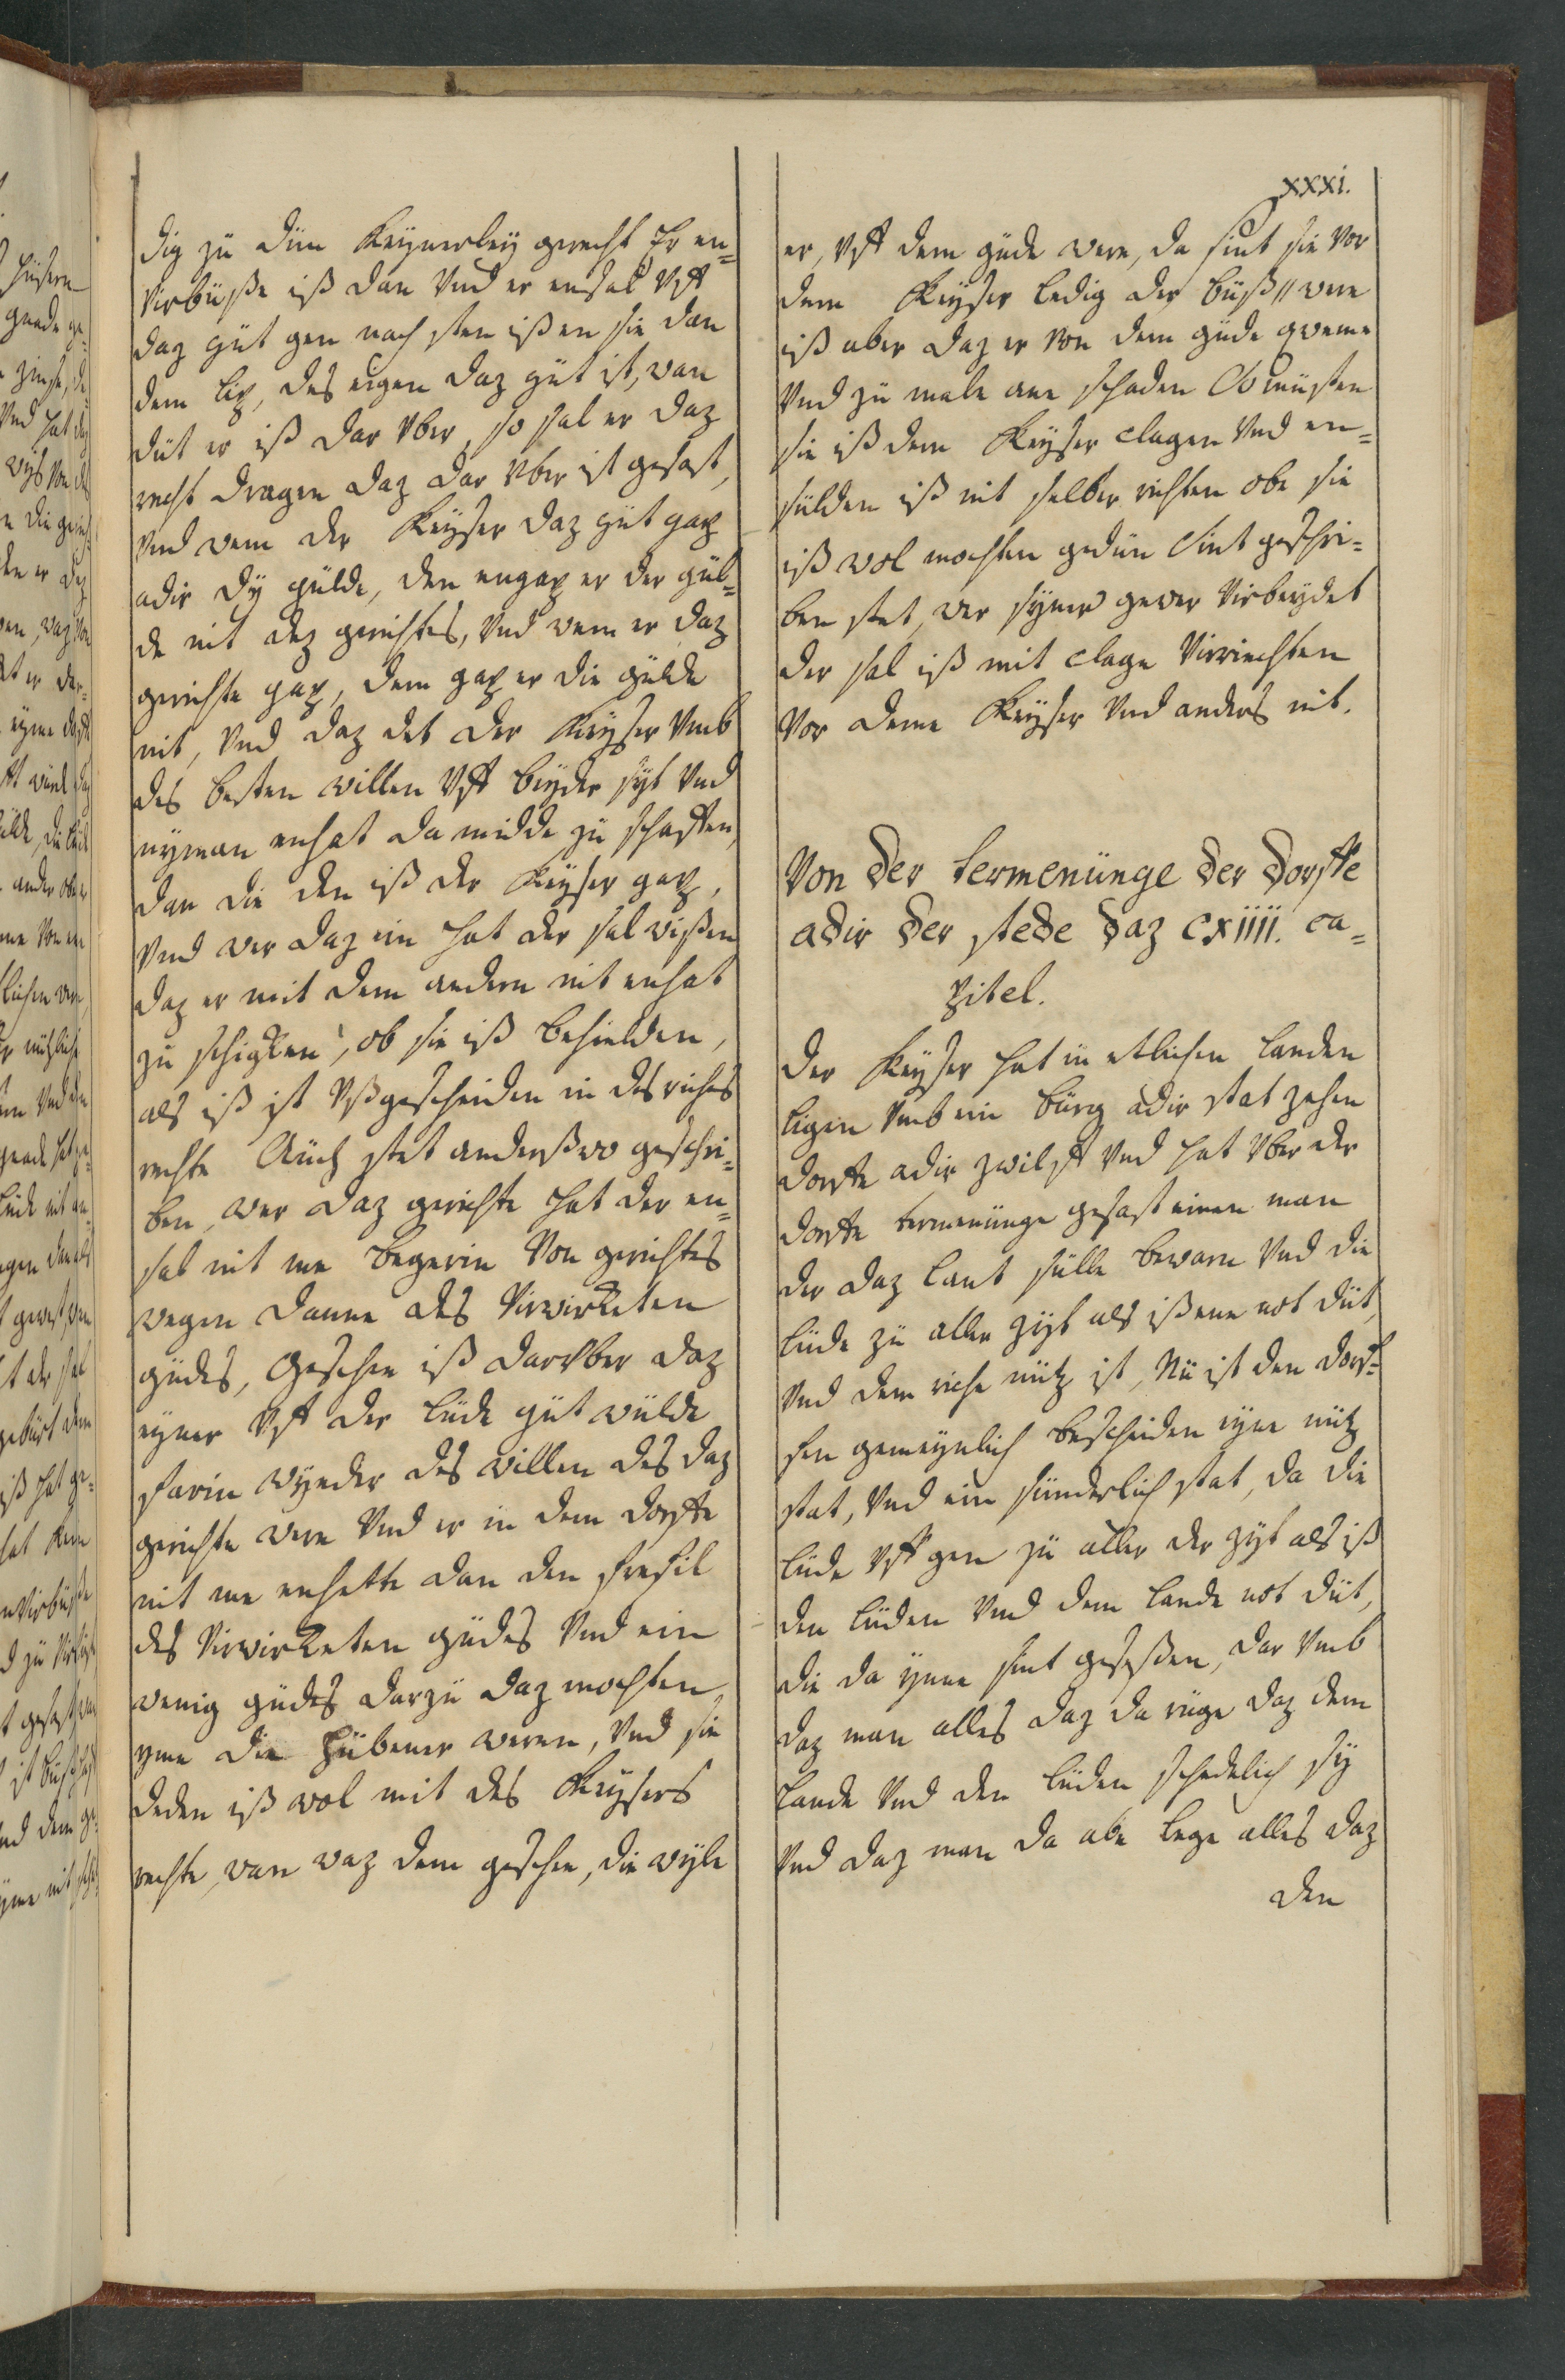 xxxi.
dig zü dün Keynerley gerecht Er en=
virbüße iß dan Vnd er ensal Vff
daz güt gen noch sten ißen sie dan
dem lip, des eigen daz güt ist, wan
düt er iß dar vber, so sal er daz
recht dragen daz dar vber ist gesast,
Vnd wem der Keyser daz güt gap
adir dy gülde, den engap er der gül=
de nit dez gerichtes, Vnd wem er daz
gerichte gap, dem gap er die gülde
nit, Vnd daz det der Keyser Vmb
des besten willen Vff beyder syt Vnd
nyman enhat da midde zü schaffen,
dan die den iß der Keyser gap,
Vnd wer daz ein hat der sal wißen
daz er mit dem andern nit enhat
zü schigken, ob sie iß behielden,
als iß ist Vßgescheiden in des riches
rechte Auch stet anderßwo geschri=
ben, wer daz gerichte hat der en=
sal nit me begerin Von gerichtes
wegen danne des Virwirketen
güdes, Geschee iß darvber daz
eyner Vff der lüde güt wülde
farin wyeder des willen des daz
gerichte were Vnd er in dem dorffe
nit me enhette dan den frefil
des Virwirketen güdes Vnd ein
wenig güdes darzü daz mochten
yme die hübener weren, Vnd sie
deden iß wol mit des Keysers
rechte, wan waz dem geschee, die wyle
er, Vff dem güde were, da sint sie Vor
dem Keyser ledig der büß // were
iß aber daz er Von dem güde qweme
Vnd zü male ane schaden So müsten
sie iß dem Keyser clagen Vnd en=
sülden iß nit selber richten obe sie
iß wol mochten gedün Sint geschri=
ben stet, wer syner gewer Virbeydet
der sal iß mit clage Virriechten
Vor deme Keyser Vnd anders nit.
Von der termenünge der dorffe
adir der stede daz cxiiii. ca=
pitel.
Der Keyser hat in etlichen landen
ligen Vmb ein bürg adir stat zehen
dorffe adir zwilff Vnd hat Vber der
dorffe termenünge gesast einen man
der daz lant sülle bewarn Vnd die
lüde zü aller zyt als iß ene not düt,
Vnd dem riche nütz ist, Nü ist den dorf=
fen gemeynlich bescheiden eyne nütz
stat, Vnd ein sünderlich stat, da die
lüde Vff gen zü aller der zyt als iß
den lüden Vnd dem lande not düt,
die da ynne sint geseßen, dar Vmb
daz man alles daz da rüge daz dem
lande Vnd den lüden schedelich sy
Vnd daz man da abe lege alles daz
den